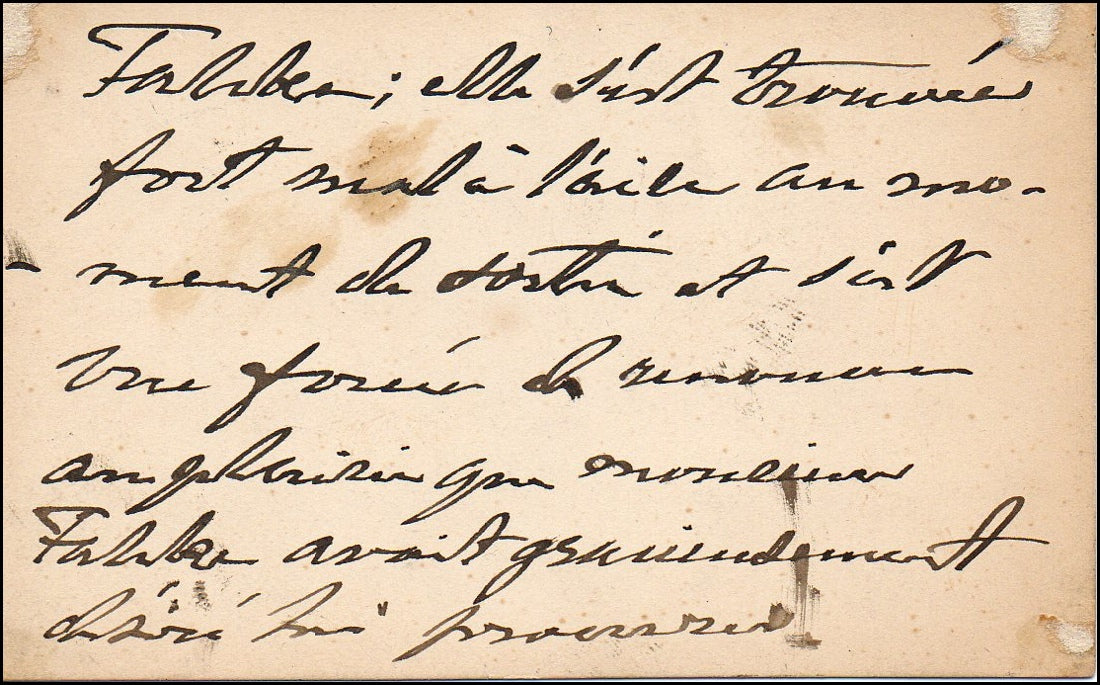 Fahlke; elle s'est trouvée
fort mal à l'aise au mo-
-ment de sortir et s'est
vue forcée de renoncer
au plaisir que monsieur
Fahlke avait gracieusement
désiré lui procurer.